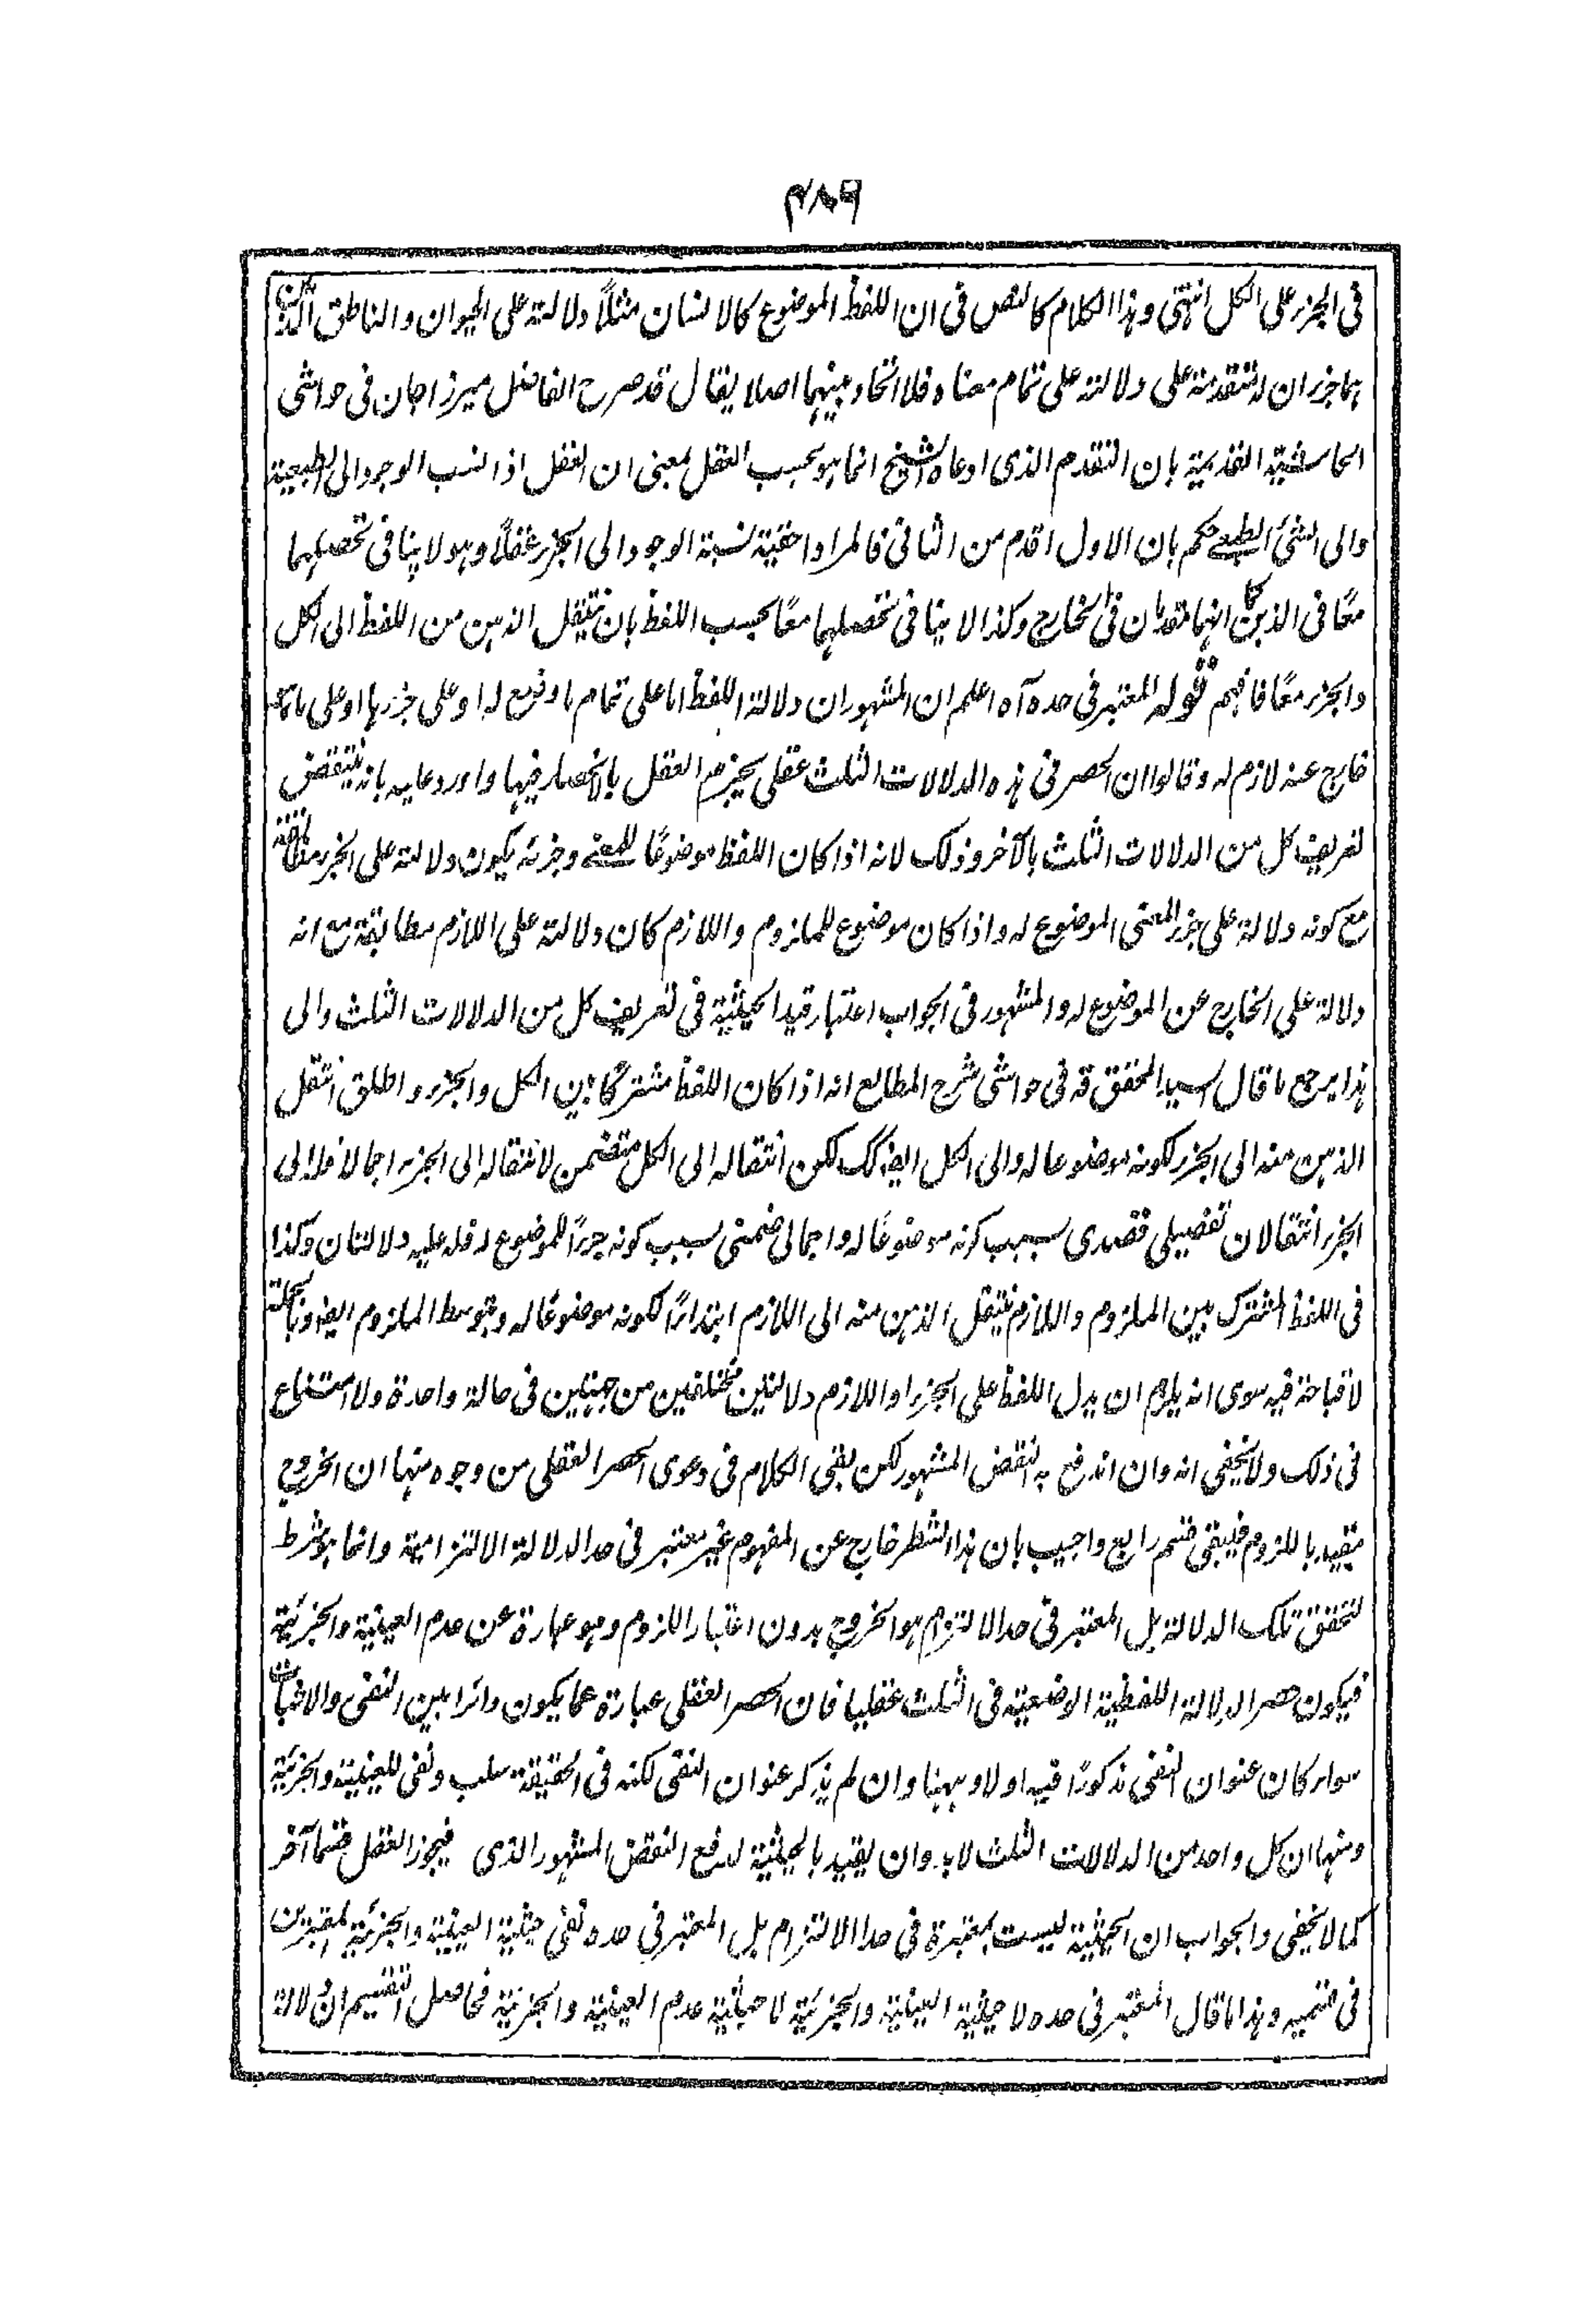 ٤٨٩
فى الجزء على الكل انتهى وهذا الكلام كالنص فى ان اللفظ الموضوع كالانسان مثلاً دلالته على الحيوان والناطق الذين
هما جزءان له متقدمة على دلالته على تمام معناه فلا اتحاد بينهما اصلا يقال قد صرح الفاضل ميرزا جان فى حواشى
الحاشية القديمة بان التقدم الذى ادعاه الشيخ انما هو بحسب العقل بمعنى ان العقل اذا نسب الوجود الى الطبيعة
والى الشئ الطبيعى حكم بان الاول اقدم من الثانى فالمراد احقية نسبة الوجود الى الجزء عقلاً وهو لا ينافى تحصلهما
معًا فى الذهن كما انهما متحدان فى الخارج وكذا لا ينافى تحصلهما معًا بحسب اللفظ بان ينتقل الذهن من اللفظ الى الكل
والجزء معًا فافهم قوله المعتبر فى حده آه اعلم ان المشهور ان دلالة اللفظ اما على تمام ما وضع له او على جزئها او على ما هو
خارج عنه لازم له وقالوا ان الحصر فى هذه الدلالات الثلث عقلى يجزم العقل بالانحصار فيها واورد عليه بانه ينتقض
تعريف كل من الدلالات الثلث بالآخر وذلك لانه اذا كان اللفظ موضوعًا للمعنى وجزئه يكون دلالته على الجزء مطابقة
مع كونه دلالة على جزء المعنى الموضوع له واذا كان موضوع للملزوم واللازم كان دلالته على اللازم مطابقة مع انه
دلالة على الخارج عن الموضوع له والمشهور فى الجواب اعتبار قيد الحيثية فى تعريف كل من الدلالات الثلث والى
هذا يرجع ما قال السيد المحقق قه فى حواشى شرح المطالع انه اذا كان اللفظ مشتركًا بين الكل والجزء واطلق انتقل
الذهن منه الى الجزء لكونه موضوعا له والى الكل ايضا كك لكن انتقاله الى الكل متضمن لانتقاله الى الجزء اجمالا فله الى
الجزء انتقالان تفصيلى قصدى بسبب كونه موضوعًا له واجمالى ضمنى بسبب كونه جزءًا للموضوع له فله عليه دلالتان وكذا
فى اللفظ المشترك بين الملزوم واللازم ينتقل الذهن منه الى اللازم ابتداءً لكونه موضوعًا له وبتوسط الملزوم ايضا وبالجملة
لا قباحة فيه سوى انه يلزم ان يدل اللفظ على الجزء او اللازم دلالتين مختلفتين من جهتين فى حالة واحدة ولا امتناع
فى ذلك ولا يخفى انه وان اندفع به النقض المشهور لكن بقى الكلام فى دعوى الحصر العقلى من وجوه منها ان الخروج
مقيد باللزوم فيبقى قسم رابع واجيب بان هذا الشطر خارج عن المفهوم غير معتبر فى حد الدلالة الالتزامية وانما هو شرط
لتحقق تلك الدلالة بل المعتبر فى حد الالتزام هو الخروج بدون اعتبار اللزوم وهو عبارة عن عدم العينية والجزئية
فيكون حصر الدلالة اللفظية الوضعية فى الثلث عقليا فان الحصر العقلى عبارة عما يكون دائرا بين النفى والاثبات
سواء كان عنوان النفى مذكورًا فيه او لا وههنا وان لم يذكر عنوان النفى لكنه فى الحقيقة سلب ونفى للعينية والجزئية
ومنها ان كل واحد من الدلالات الثلث لابد وان يقيد بالحيثية لدفع النقض المشهور الذى فيجوز العقل قسما آخر
كما لا يخفى والجواب ان الحيثية ليست بمعتبرة فى حد الالتزام بل المعتبر فى حده نفى حيثية العينية والجزئية المعتبرتين
فى قسميه وهذا ما قال المعتبر فى حده لا حيثية العينية والجزئية لا حيثية عدم العينية والجزئية فحاصل التقسيم ان دلالة